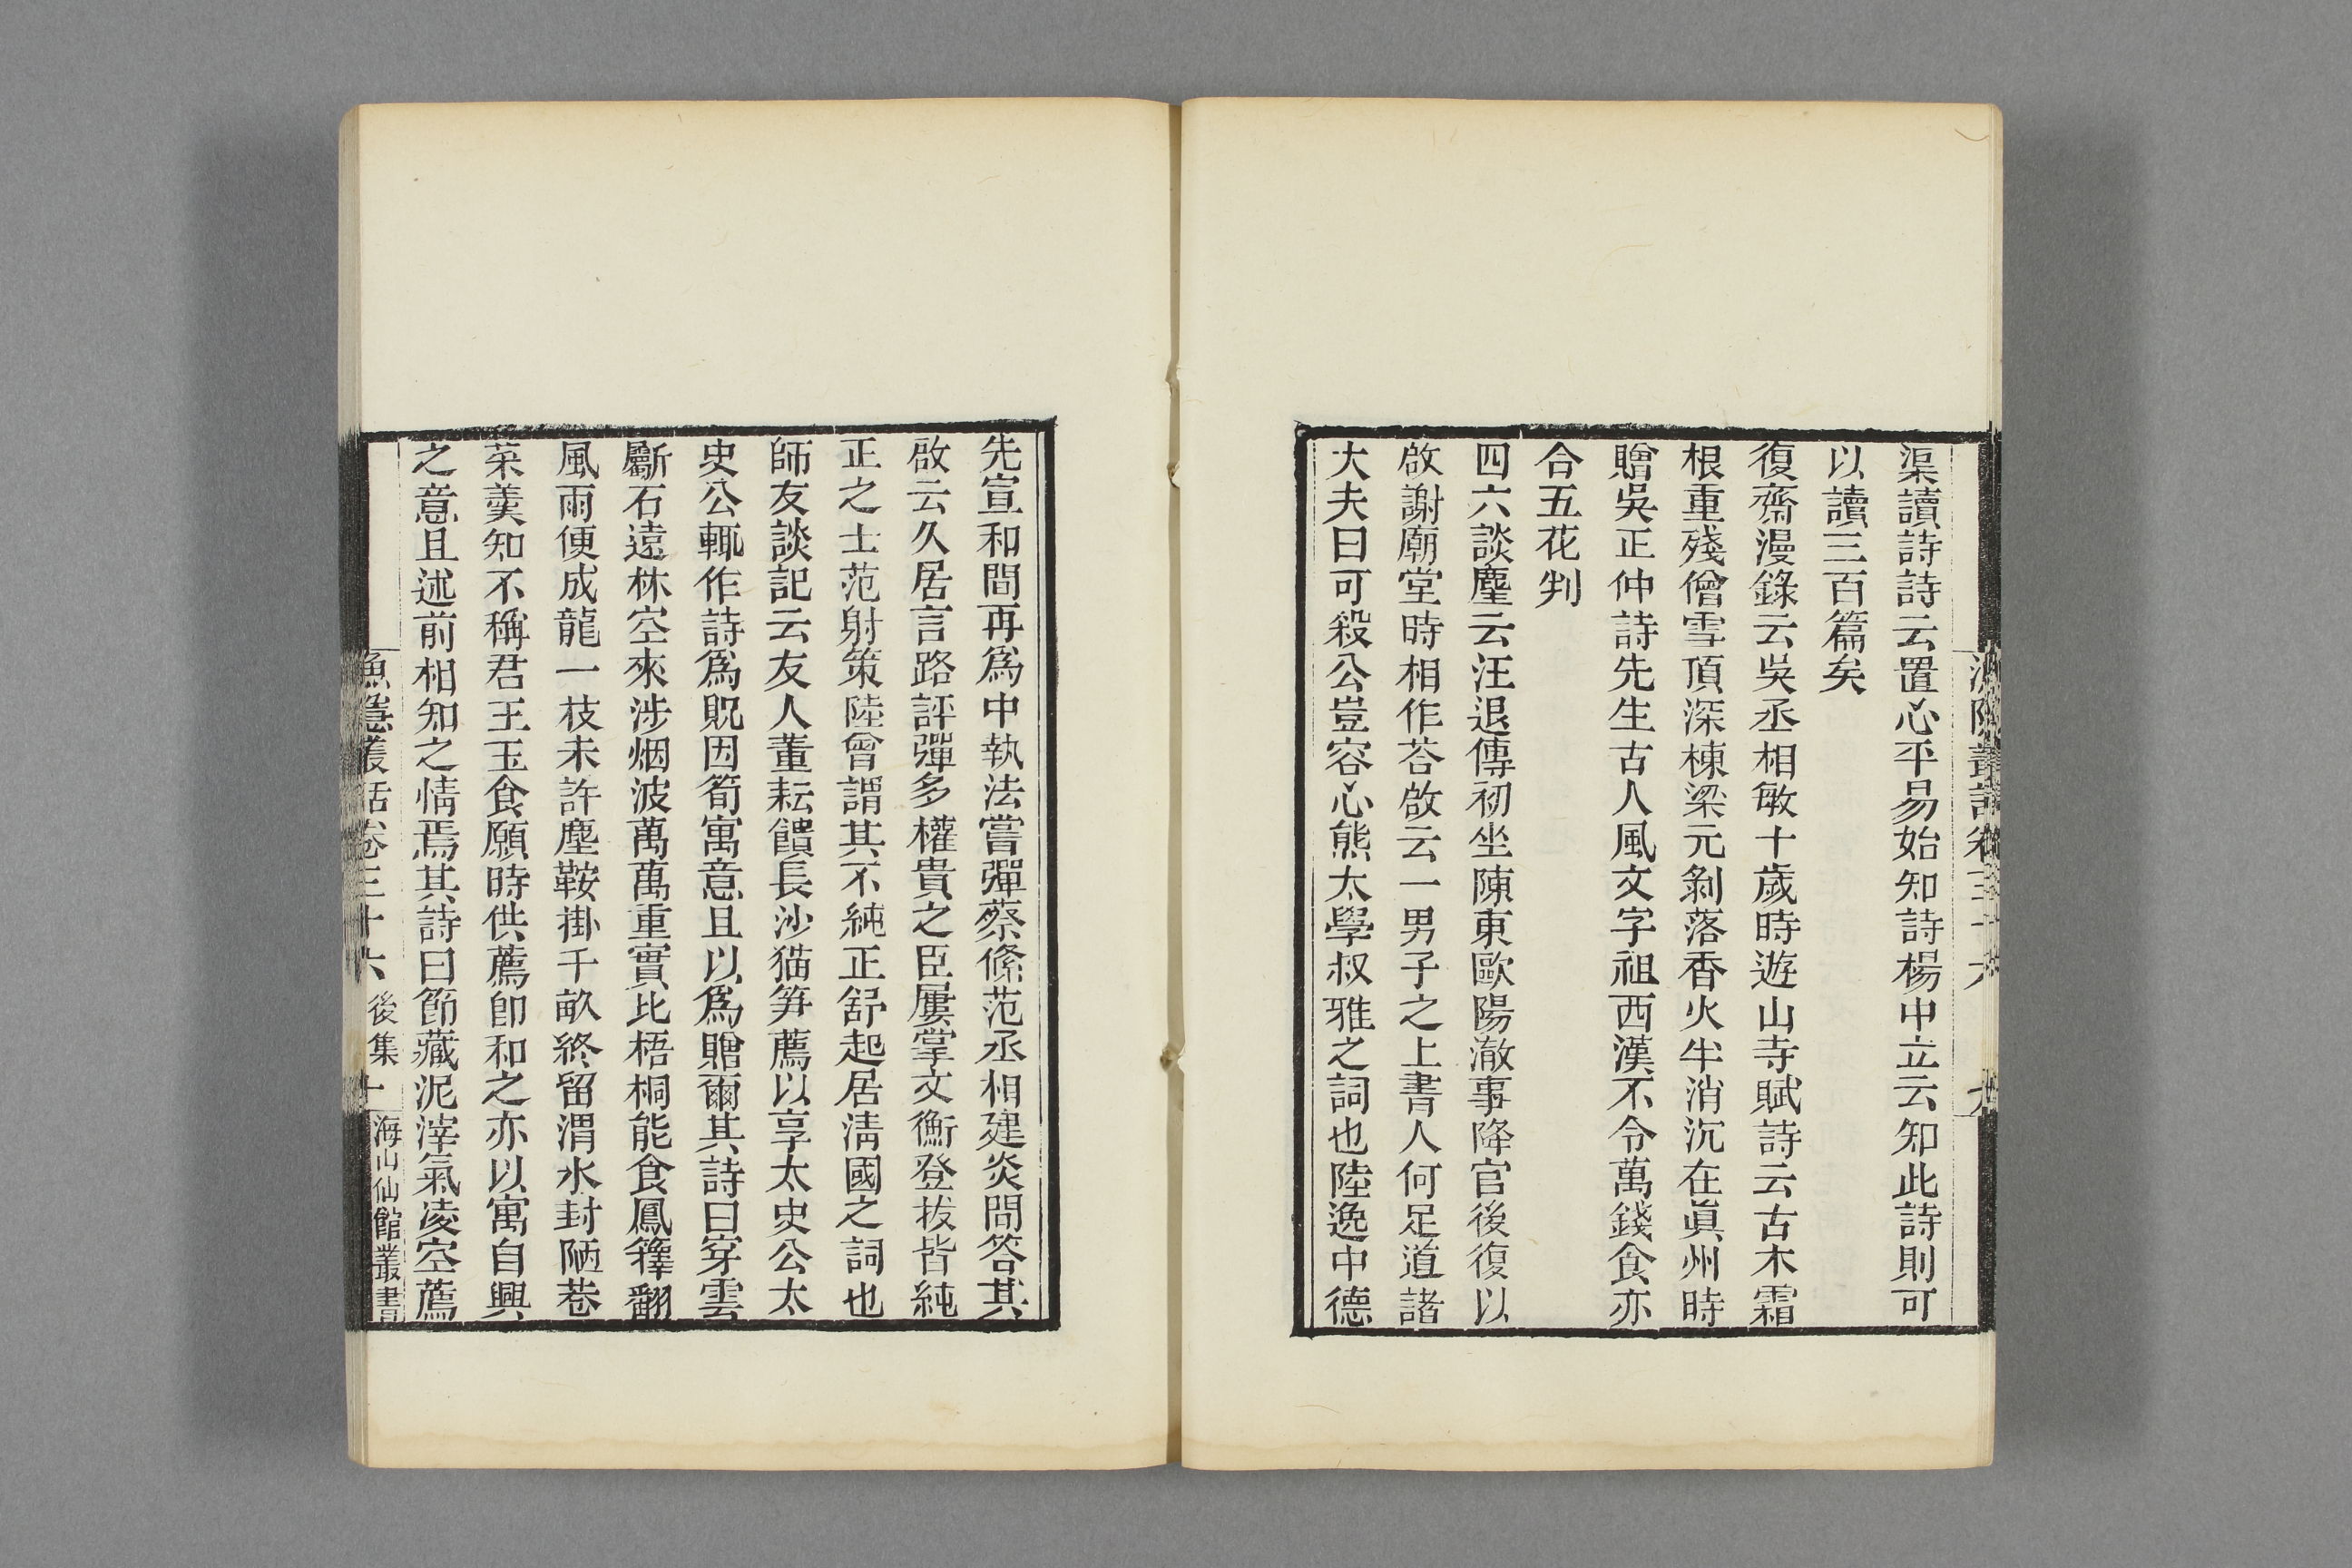 渠讀詩詩云置心平易始知詩楊中立云知此詩則可
以讀三百篇矣
復齋漫錄云吳丞相敏十歲時遊山寺賦詩云古木霜
根重殘僧雪頂深棟梁元剝落香火半消沉在眞州時
贈吳正仲詩先生古人風文字祖西漢不令萬錢食亦
合五花判
四六談麈云汪退傅初坐陳東歐陽澈事降官後復以
啟謝廟堂時相作荅啟云一男子之上書人何足道諸
大夫曰可殺公豈容心熊太學叔雅之詞也陸逸中德
先宣和間再爲中執法嘗彈蔡絛范丞相建炎問答其
啟云久居言路評彈多權貴之臣屢掌文衡登拔皆純
正之士范射策陸曾謂其不純正舒起居清國之詞也
師友談記云友人董耘饋長沙猫笋薦以享太史公太
史公輒作詩爲貺因筍寓意且以爲贈爾其詩曰穿雲
斸石遠林空來涉烟波萬萬重實比梧桐能食鳳籜翻
風雨便成龍一枝未許塵鞍掛千畝終留渭水封陋巷
菜羹知不稱君王玉食願時供薦卽和之亦以寓自興
之意且述前相知之情焉其詩曰節藏泥滓氣凌空薦
漁隱叢話卷三十六 後集 海山仙館叢書